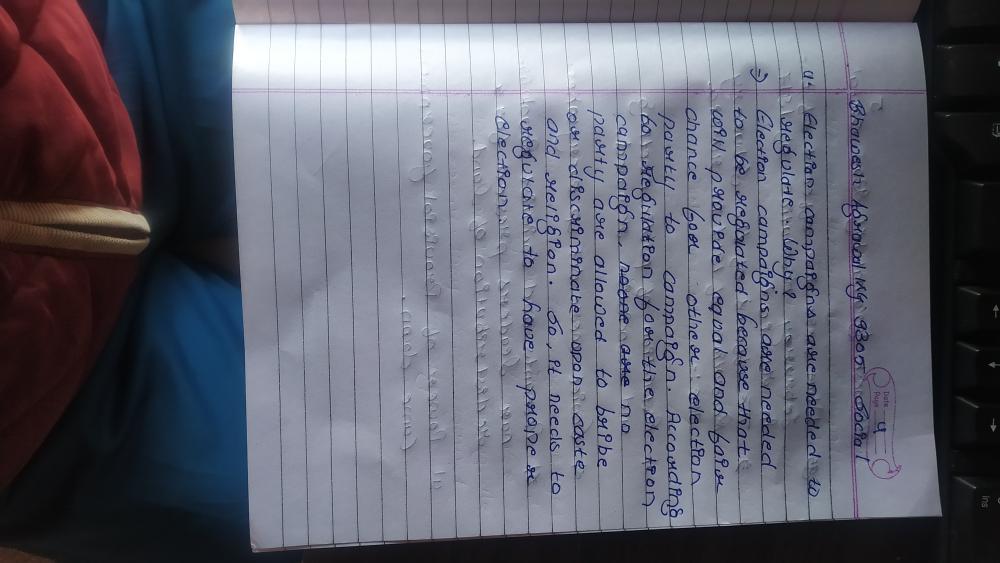 Date
Page 4
Bhavesh Agrawal KG 9305 Social
4. Election campaigns are needed to
regulate. Why?
⇒ Election campaigns are needed
to be reglated because that
will provide eqnal and fair
chance for other election
party to campaign. According
to regulation for the election
campaign, none are no
party are allowed to bribe
or discriminate upon caste
and religion. So, it needs to
regulate to have proper
election.
ins